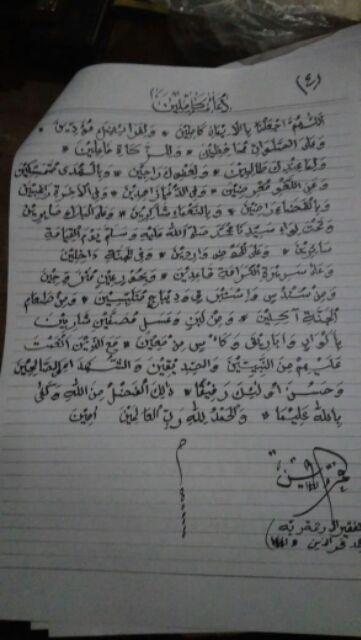 (٤)
دعاء كاملين
اللهم اجعلنا بالايمان كاملين * وللفرائض مؤدين *
وعلى الصلوات محافظين * وللزكاة فاعلين *
ولما عندك طالبين * ولعفوك راجين * وبالهدى متمسكين
وعن اللغو معرضين * وفي الدنيا زاهدين * وفي الآخرة راغبين
وبالقضاء راضين * وبالنعماء شاكرين * وعلى البلاء صابرين
وتحت لواء سيدنا محمد صلى الله عليه وسلم يوم القيامة
سائرين * وعلى الحوض واردين * وفي الجنة داخلين
وعلى سرير الكرامة قاعدين * وبحور عين متزوجين
ومن سندس واستبرق وديباج متلبسين * ومن طعام
الجنة آكلين * ومن لبن وعسل مصفين شاربين
باكواب واباريق وكأس من معين * مع الذين انعمت
عليهم من النبيين والصديقين والشهداء والصالحين
وحسن اولئك رفيقا * ذلك الفضل من الله وكفى
بالله عليما * والحمد لله رب العالمين امين
م